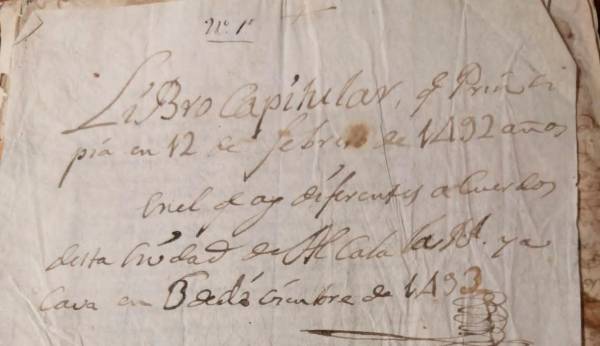 No. 1º
Libro Capitular, q Prinsi
pia en 12 de febrero de 1492 años
en el q ay diferentes acuerdos
desta Ciudad de Alcala la Rl. y a
cava en 5 de diciembre de 1493